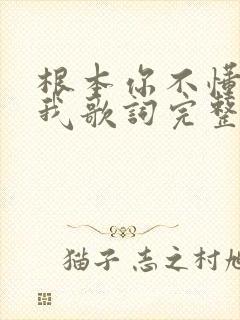 根本你不懂
我歌詞完整
猫子 志之村旭